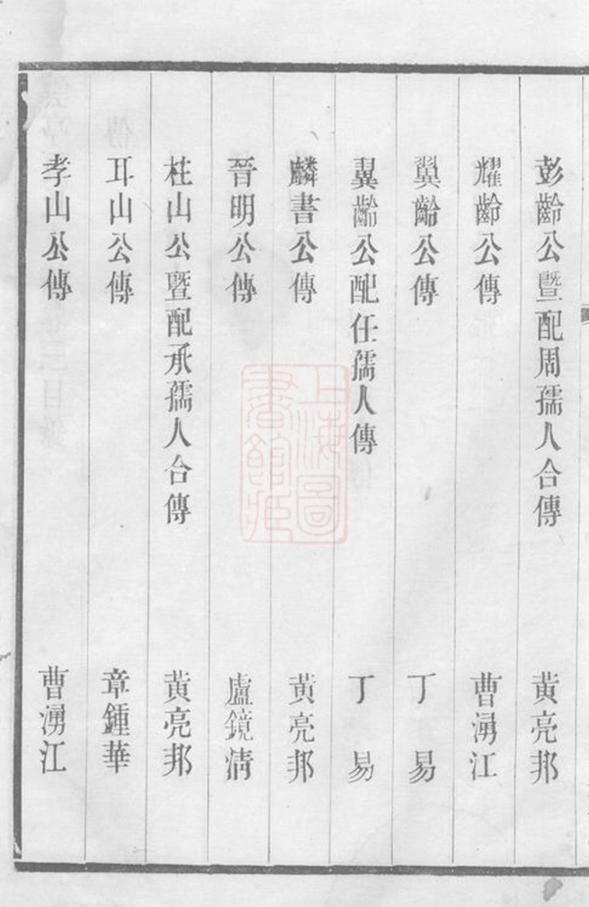 彭齡公暨配周孺人合傳 黃亮邦
耀齡公傳 曹湧江
翼齡公傳 丁易
異齡公配任孺人傳 丁易
麟書公傳 黃亮邦
晉明公傳 盧鏡淸
桂山公暨配承孺人合傳 黃亮邦
耳山公傳 章鍾華
孝山公傳 曹湧江
上海圖書館藏